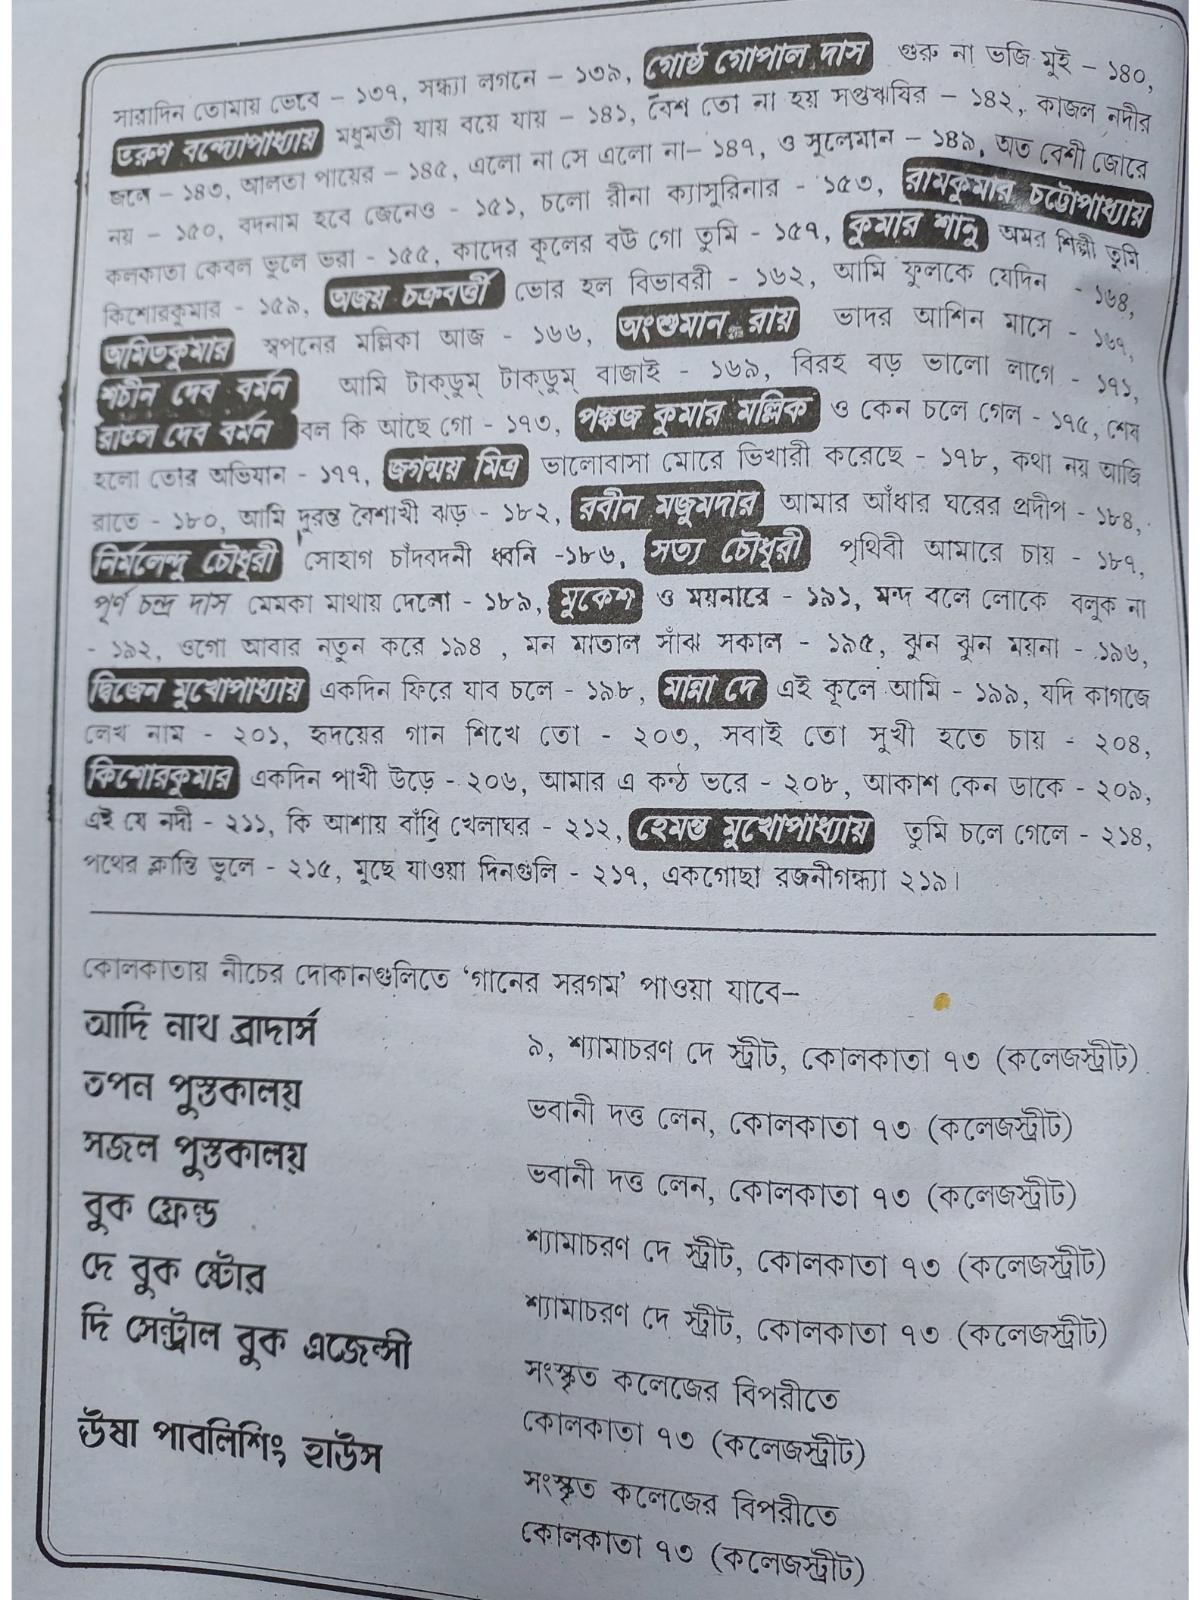 সারাদিন তোমায় ভেবে – ১৩৭, সন্ধ্যা লগনে – ১৩৯, গোষ্ঠ গোপাল দাস গুরু না ভজি মুই – ১৪০,
তরুণ বন্দ্যোপাধ্যায় মধুমতী যায় বয়ে যায় – ১৪১, বেশ তো না হয় সপ্তঋষির – ১৪২, কাজল নদীর
জলে – ১৪৩, আলতা পায়ের – ১৪৫, এলো না সে এলো না– ১৪৭, ও সুলেমান – ১৪৯, অত বেশী জোরে
নয় – ১৫০, বদনাম হবে জেনেও - ১৫১, চলো রীনা ক্যাসুরিনার - ১৫৩, রামকুমার চট্টোপাধ্যায়
কলকাতা কেবল ভুলে ভরা - ১৫৫, কাদের কূলের বউ গো তুমি - ১৫৭, কুমার শানু অমর শিল্পী তুমি
কিশোরকুমার - ১৫৯, অজয় চক্রবর্ত্তী ভোর হল বিভাবরী - ১৬২, আমি ফুলকে যেদিন - ১৬৪,
অমিতকুমার স্বপনের মল্লিকা আজ - ১৬৬, অংশুমান রায় ভাদর আশিন মাসে - ১৬৭,
শচীন দেব বর্মন আমি টাক্‌ডুম্ টাক্‌ডুম্ বাজাই - ১৬৯, বিরহ বড় ভালো লাগে - ১৭১,
রাহুল দেব বর্মন বল কি আছে গো - ১৭৩, পঙ্কজ কুমার মল্লিক ও কেন চলে গেল - ১৭৫, শেষ
হলো তোর অভিযান - ১৭৭, জগন্ময় মিত্র ভালোবাসা মোরে ভিখারী করেছে - ১৭৮, কথা নয় আজি
রাতে - ১৮০, আমি দুরন্ত বৈশাখী ঝড় - ১৮২, রবীন মজুমদার আমার আঁধার ঘরের প্রদীপ - ১৮৪,
নির্মলেন্দু চৌধুরী সোহাগ চাঁদবদনী ধ্বনি -১৮৬, সত্য চৌধুরী পৃথিবী আমারে চায় - ১৮৭,
পূর্ণ চন্দ্র দাস মেমকা মাথায় দেলো - ১৮৯, মুকেশ ও ময়নারে - ১৯১, মন্দ বলে লোকে বলুক না
- ১৯২, ওগো আবার নতুন করে ১৯৪ , মন মাতাল সাঁঝ সকাল - ১৯৫, ঝুন ঝুন ময়না - ১৯৬,
দ্বিজেন মুখোপাধ্যায় একদিন ফিরে যাব চলে - ১৯৮, মান্না দে এই কূলে আমি - ১৯৯, যদি কাগজে
লেখ নাম - ২০১, হৃদয়ের গান শিখে তো - ২০৩, সবাই তো সুখী হতে চায় - ২০৪,
কিশোরকুমার একদিন পাখী উড়ে - ২০৬, আমার এ কণ্ঠ ভরে - ২০৮, আকাশ কেন ডাকে - ২০৯,
এই যে নদী - ২১১, কি আশায় বাঁধি খেলাঘর - ২১২, হেমন্ত মুখোপাধ্যায় তুমি চলে গেলে - ২১৪,
পথের ক্লান্তি ভুলে - ২১৫, মুছে যাওয়া দিনগুলি - ২১৭, একগোছা রজনীগন্ধ্যা ২১৯।
কোলকাতায় নীচের দোকানগুলিতে ‘গানের সরগম’ পাওয়া যাবে–
আদি নাথ ব্রাদার্স ৯, শ্যামাচরণ দে স্ট্রীট, কোলকাতা ৭৩ (কলেজস্ট্রীট)
তপন পুস্তকালয় ভবানী দত্ত লেন, কোলকাতা ৭৩ (কলেজস্ট্রীট)
সজল পুস্তকালয় ভবানী দত্ত লেন, কোলকাতা ৭৩ (কলেজস্ট্রীট)
বুক ফ্রেন্ড শ্যামাচরণ দে স্ট্রীট, কোলকাতা ৭৩ (কলেজস্ট্রীট)
দে বুক ষ্টোর শ্যামাচরণ দে স্ট্রীট, কোলকাতা ৭৩ (কলেজস্ট্রীট)
দি সেন্ট্রাল বুক এজেন্সী সংস্কৃত কলেজের বিপরীতে
কোলকাতা ৭৩ (কলেজস্ট্রীট)
ঊষা পাবলিশিং হাউস সংস্কৃত কলেজের বিপরীতে
কোলকাতা ৭৩ (কলেজস্ট্রীট)